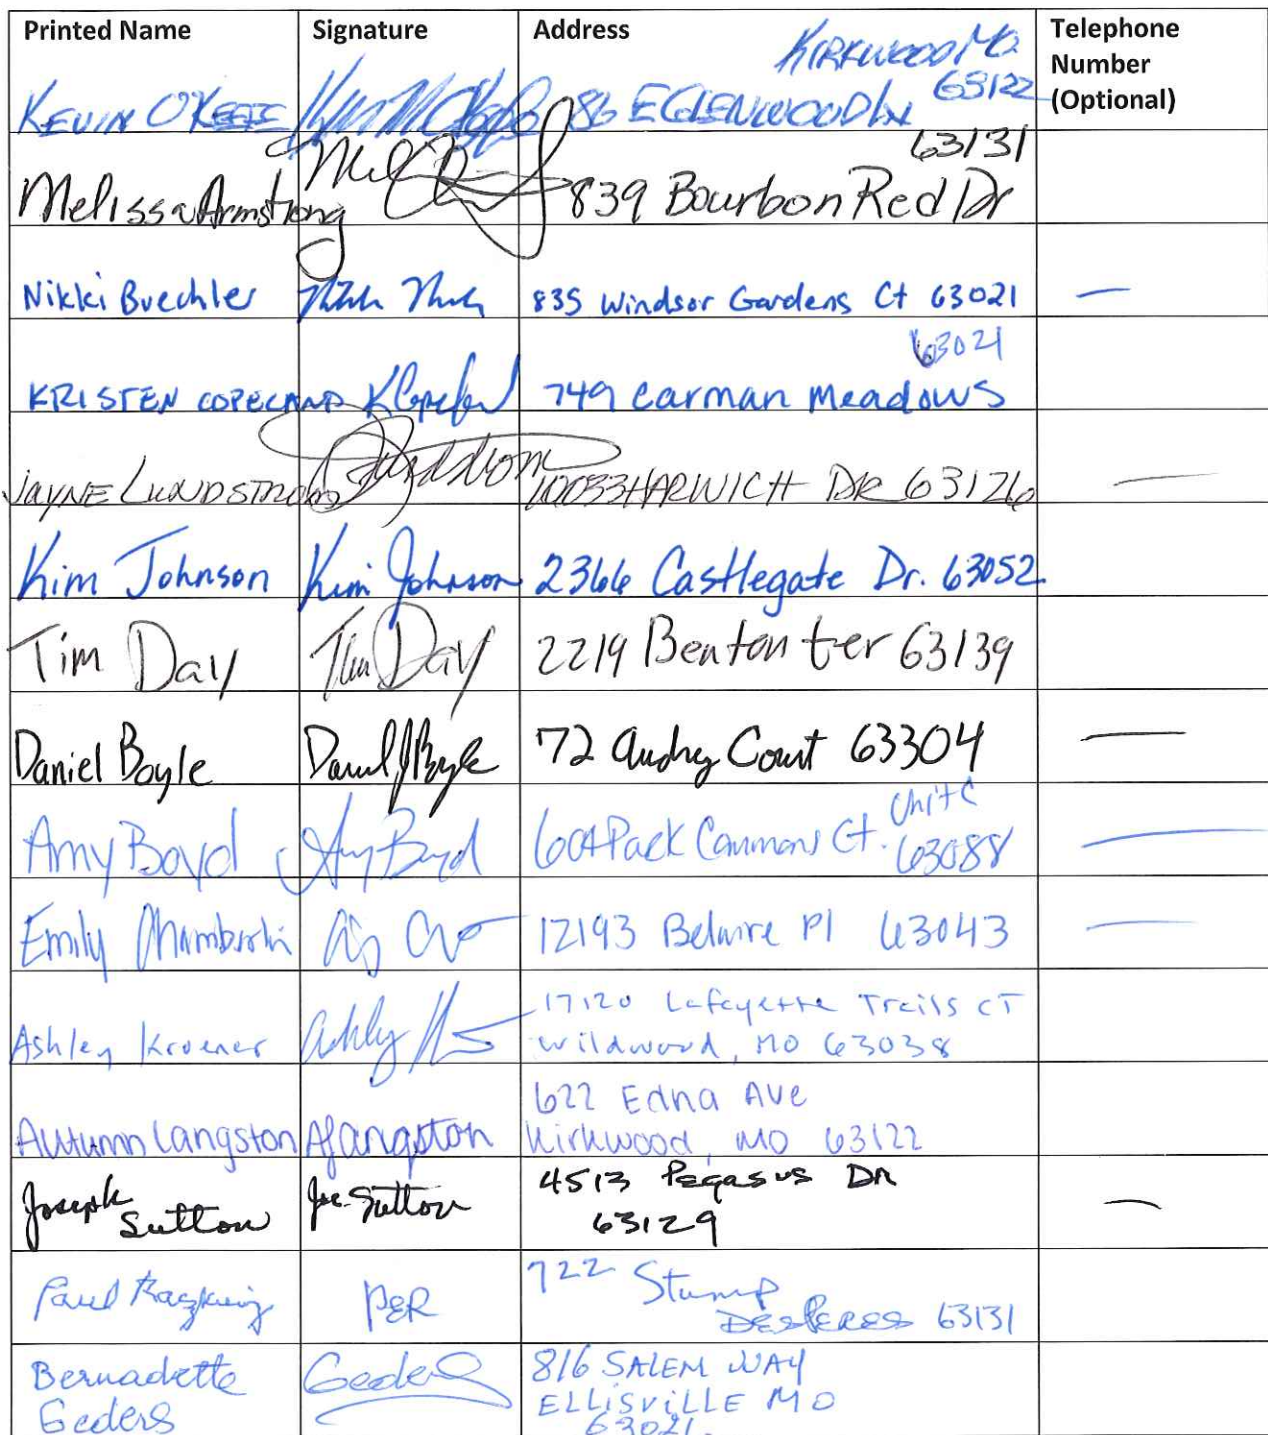 Printed Name Signature Address Telephone Number (Optional)
KEVIN O'KEEFE 86 E GLENWOOD LN KIRKWOOD MO 63122
Melissa Armstrong 839 Bourbon Red Dr 63131
Nikki Buechler 835 Windsor Gardens Ct 63021 —
KRISTEN COPELAND K Copeland 749 Carman Meadows 63021
JAYNE LUNDSTROM 10033 HARWICH DR 63126 —
Kim Johnson Kim Johnson 2366 Castlegate Dr. 63052
Tim Day Tim Day 2219 Benton ter 63139
Daniel Boyle Daniel J Boyle 72 Audry Court 63304 —
Amy Boyd Amy Boyd 604 Park Commons Ct. Unit C 63088 —
Emily 12193 Belwire Pl 63043 —
Ashley Kroener Ashley 17120 Lafayette Trails CT
Wildwood, MO 63038
Autumn Langston ALangston 622 Edna Ave
Kirkwood, MO 63122
Joseph Sutton Joe Sutton 4513 Pegasus DR
63129 —
Paul PER 722 Stump
DES PERES 63131
Bernadette Geders Geders 816 SALEM WAY
ELLISVILLE MO
63021.